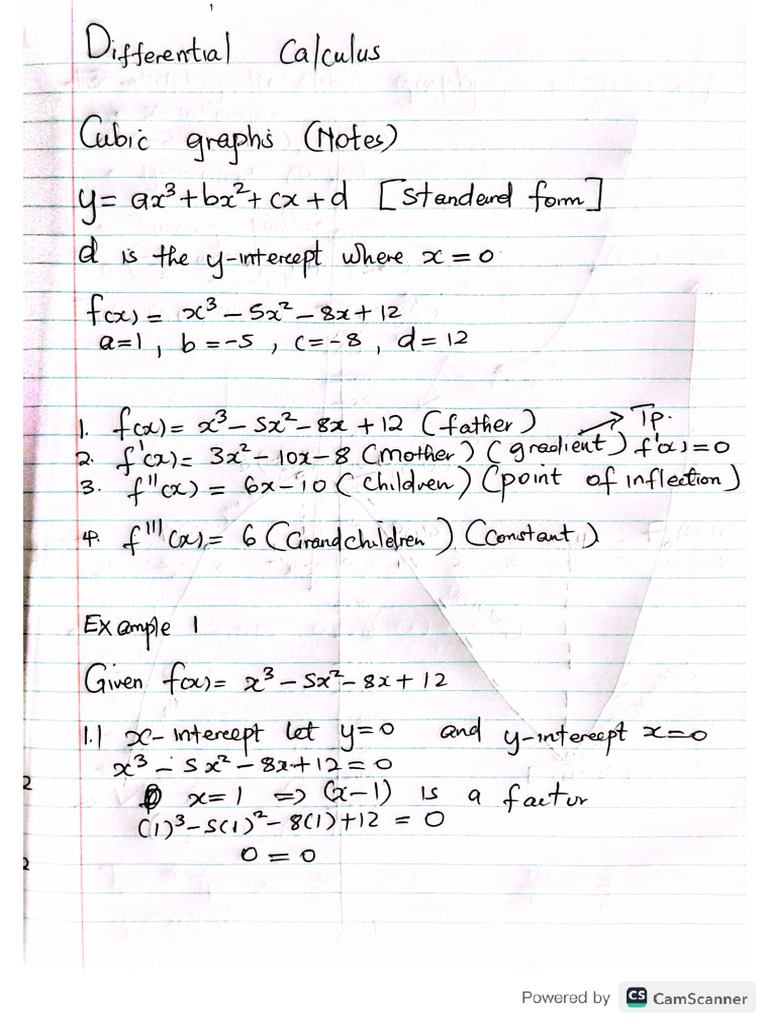 Differential Calculus
Cubic graphs (Notes)
y = ax³ + bx² + cx + d [Standard form]
d is the y-intercept where x = 0
f(x) = x³ - 5x² - 8x + 12
a=1, b=-5, c=-8, d=12
1. f(x) = x³ - 5x² - 8x + 12 (father) → Tp.
2. f'(x) = 3x² - 10x - 8 (Mother) (gradient) f'(x) = 0
3. f''(x) = 6x - 10 (children) (point of inflection)
4. f'''(x) = 6 (Grandchildren) (Constant)
Example 1
Given f(x) = x³ - 5x² - 8x + 12
1.1 x-intercept let y=0 and y-intercept x=0
x³ - 5x² - 8x + 12 = 0
x = 1 => (x-1) is a factor
(1)³ - 5(1)² - 8(1) + 12 = 0
0 = 0
2
2
Powered by CS CamScanner